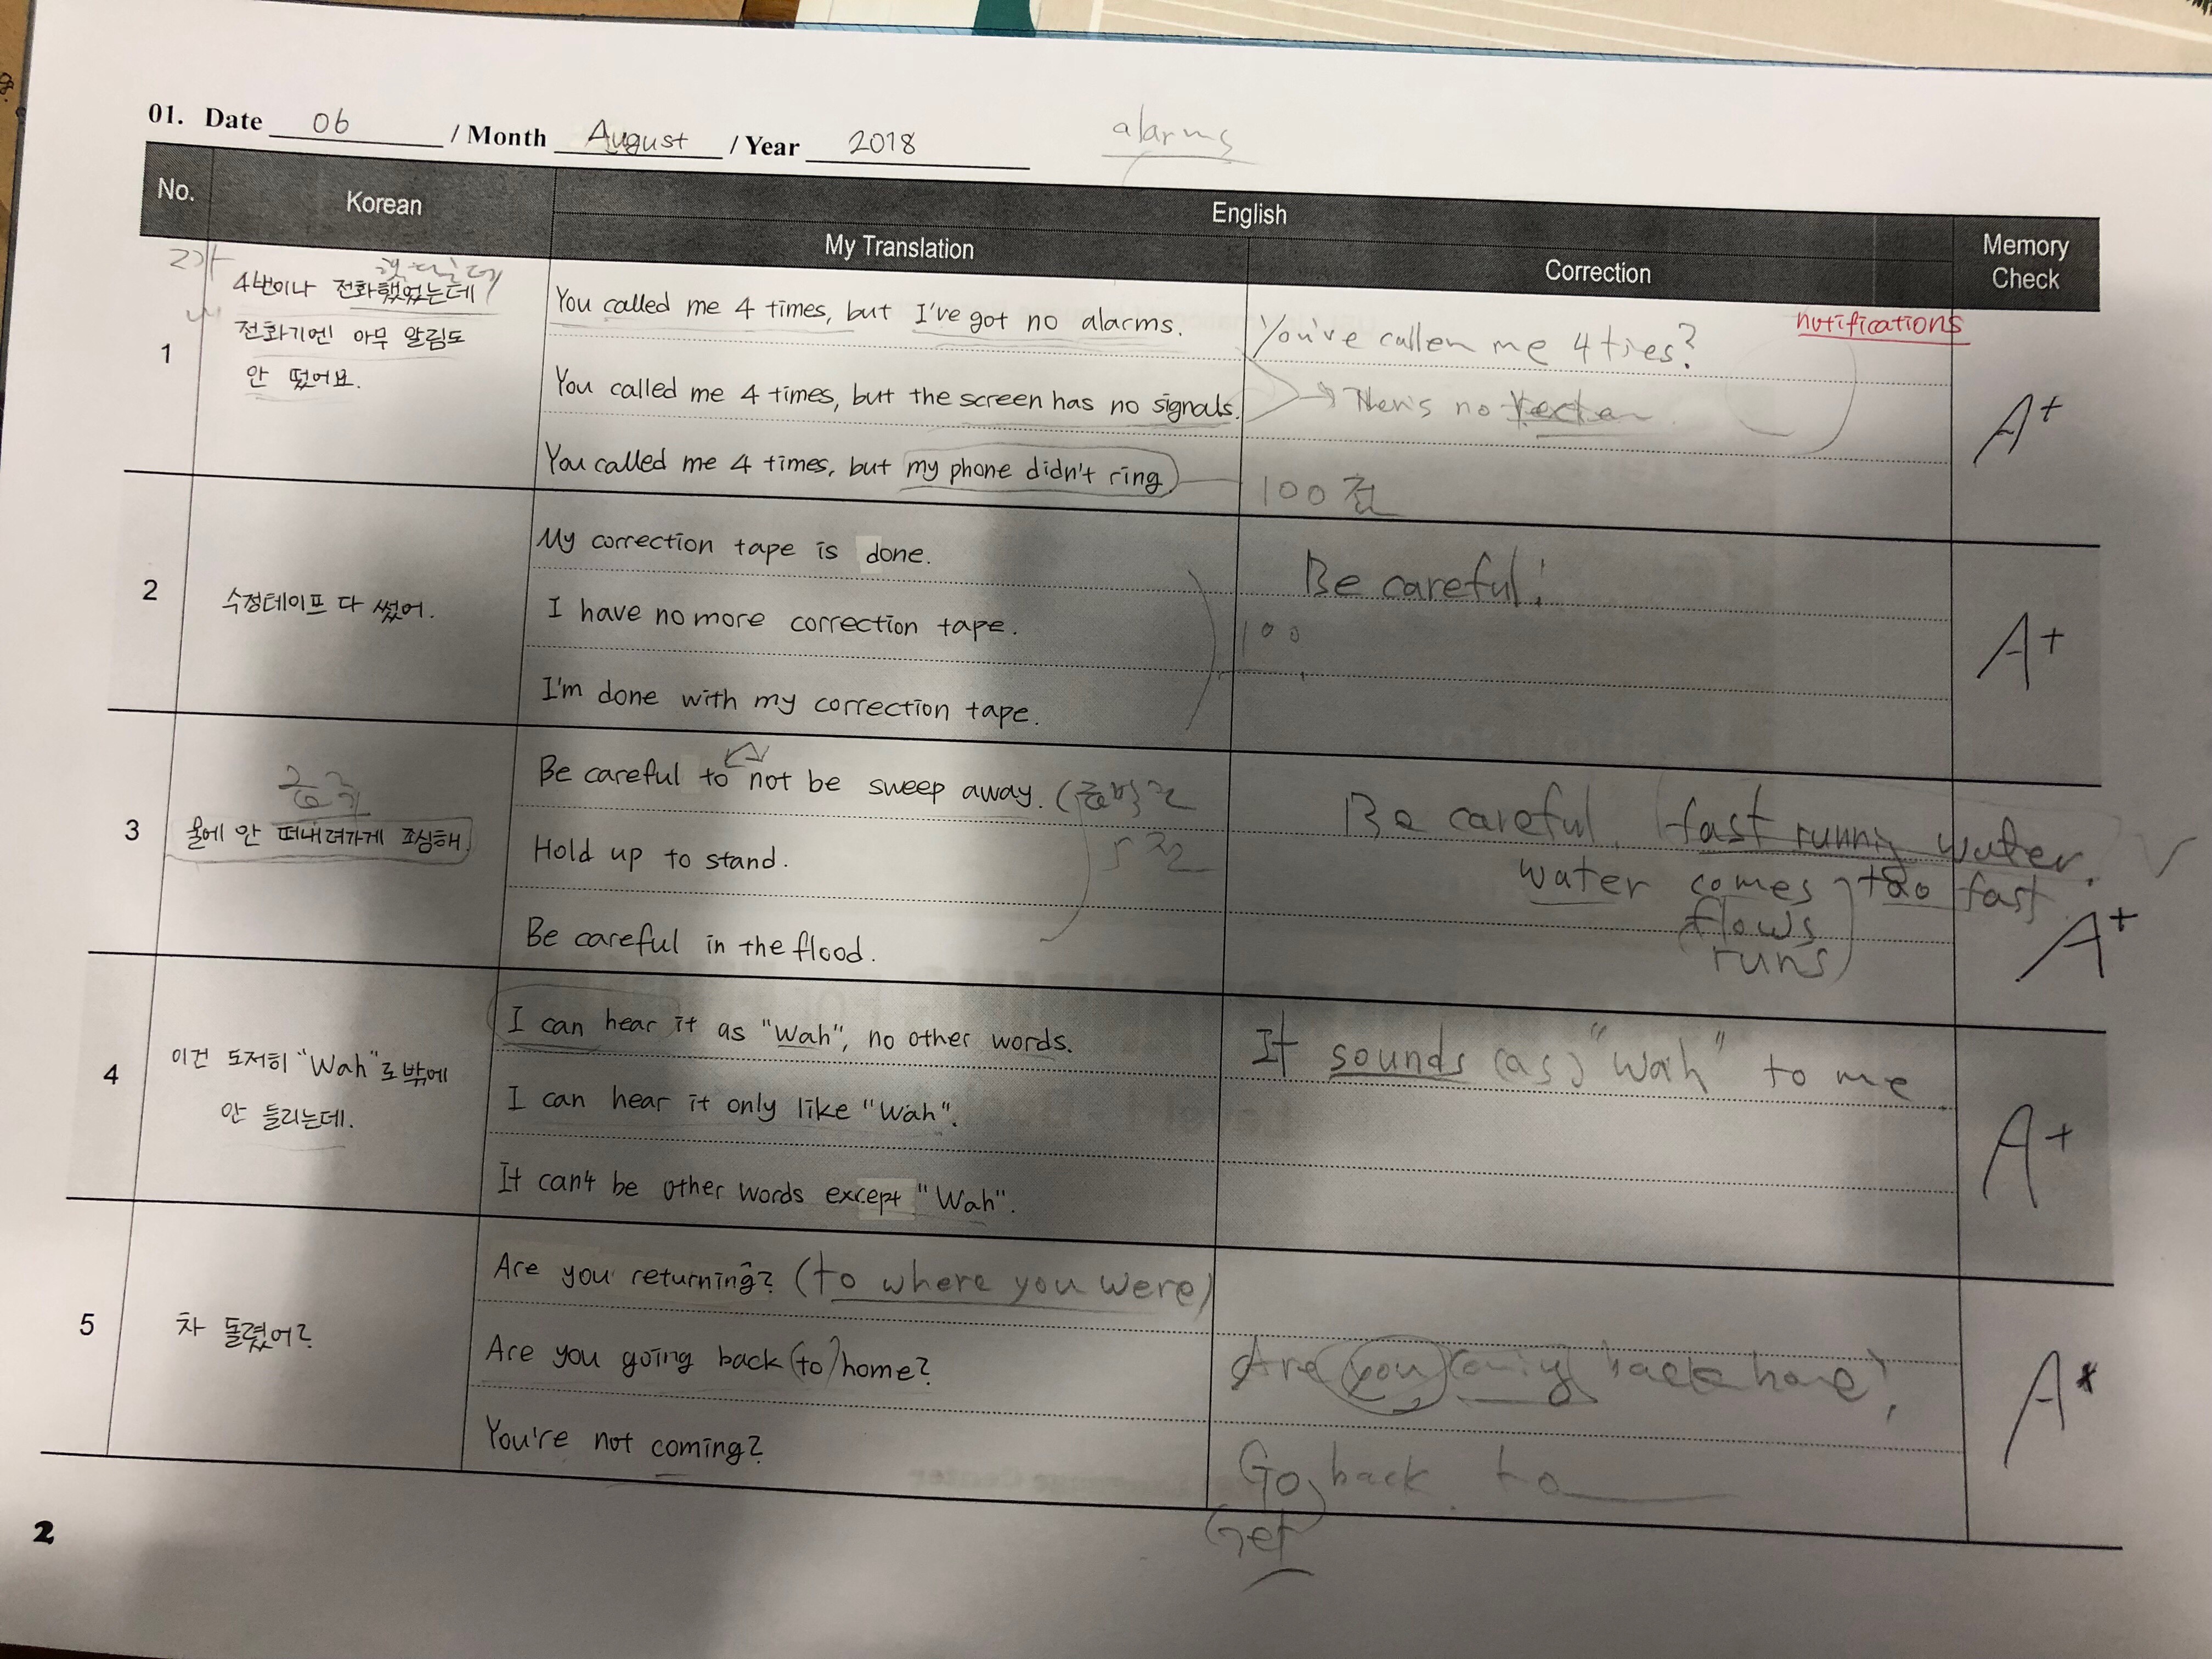 01. Date 06 / Month August / Year 2018
alarms
No.
Korean
English
My Translation
Correction
Memory Check
1
4번이나 전화했었는데
전화기엔 아무 알림도
안 떴어요.
You called me 4 times, but I've got no alarms.
You called me 4 times, but the screen has no signals.
You called me 4 times, but my phone didn't ring
You've callen me 4 ties?
notifications
There's no
100점
A+
2
수정테이프 다 썼어.
My correction tape is done.
I have no more correction tape.
I'm done with my correction tape.
Be careful!
100
A+
3
물에 안 떠내려가게 조심해.
Be careful to not be sweep away.
Hold up to stand.
Be careful in the flood.
Be careful. fast running water.
water comes too fast
flows
runs
A+
4
이건 도저히 "Wah"로밖에
안 들리는데.
I can hear it as "Wah", no other words.
I can hear it only like "Wah".
It can't be other words except "Wah".
It sounds (as) "Wah" to me
A+
5
차 돌렸어?
Are you returning? (to where you were)
Are you going back (to) home?
You're not coming?
Are you back home?
Go back to
Get
A+
2